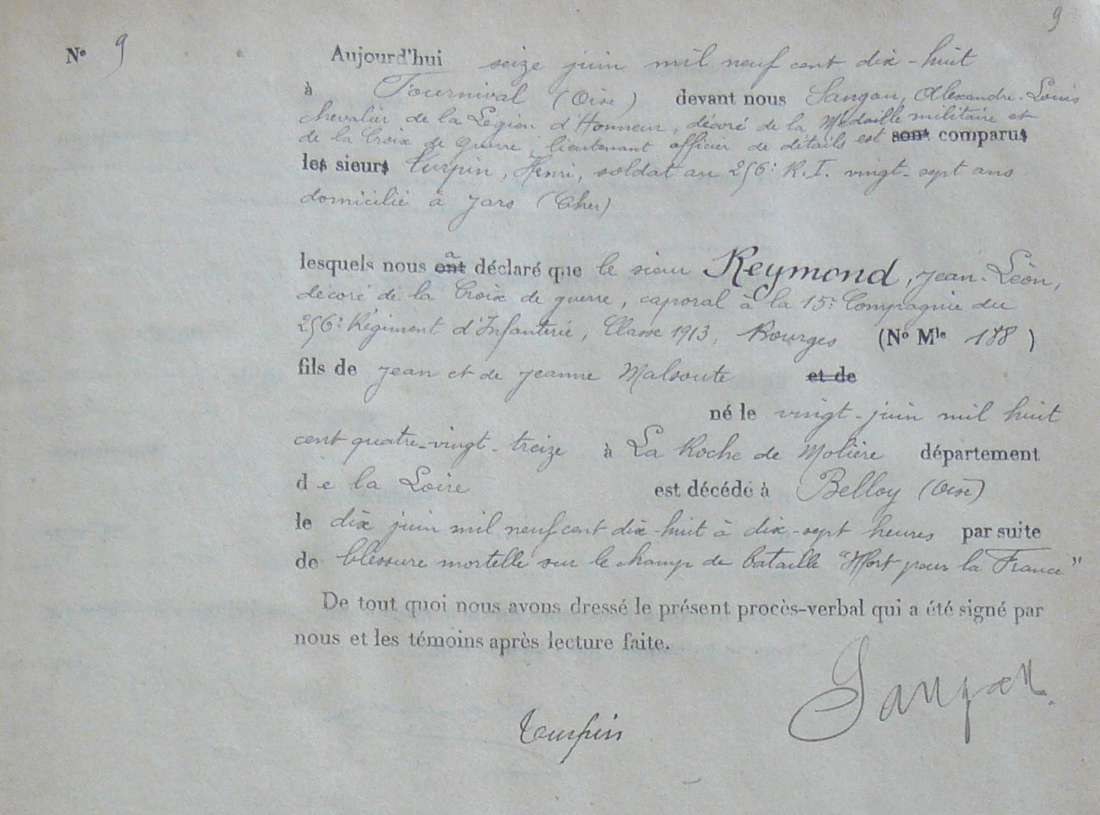 9
N° 9
Aujourd'hui seize juin mil neuf cent dix-huit
à Fournival (Oise) devant nous Sangan, Alexandre-Louis
chevalier de la Légion d'Honneur, décoré de la Médaille militaire et
de la Croix de guerre, lieutenant officier de détails est sont comparus
les sieurs Turpin, Henri, soldat au 256e R.I. vingt-sept ans
domicilié à Jars (Cher)
lesquels nous ont a déclaré que le sieur Reymond, Jean-Léon,
décoré de la Croix de guerre, caporal à la 15e Compagnie du
256e Régiment d'Infanterie, Classe 1913, Bourges (N° Mle 178)
fils de Jean et de Jeanne Malsoute et de
né le vingt-juin mil huit
cent quatre-vingt-treize à La Roche de Molière département
de la Loire est décédé à Belloy (Oise)
le dix juin mil neuf cent dix-huit à dix-sept heures par suite
de blessure mortelle sur le champ de bataille "Mort pour la France"
De tout quoi nous avons dressé le présent procès-verbal qui a été signé par
nous et les témoins après lecture faite.
Sangan
Turpin